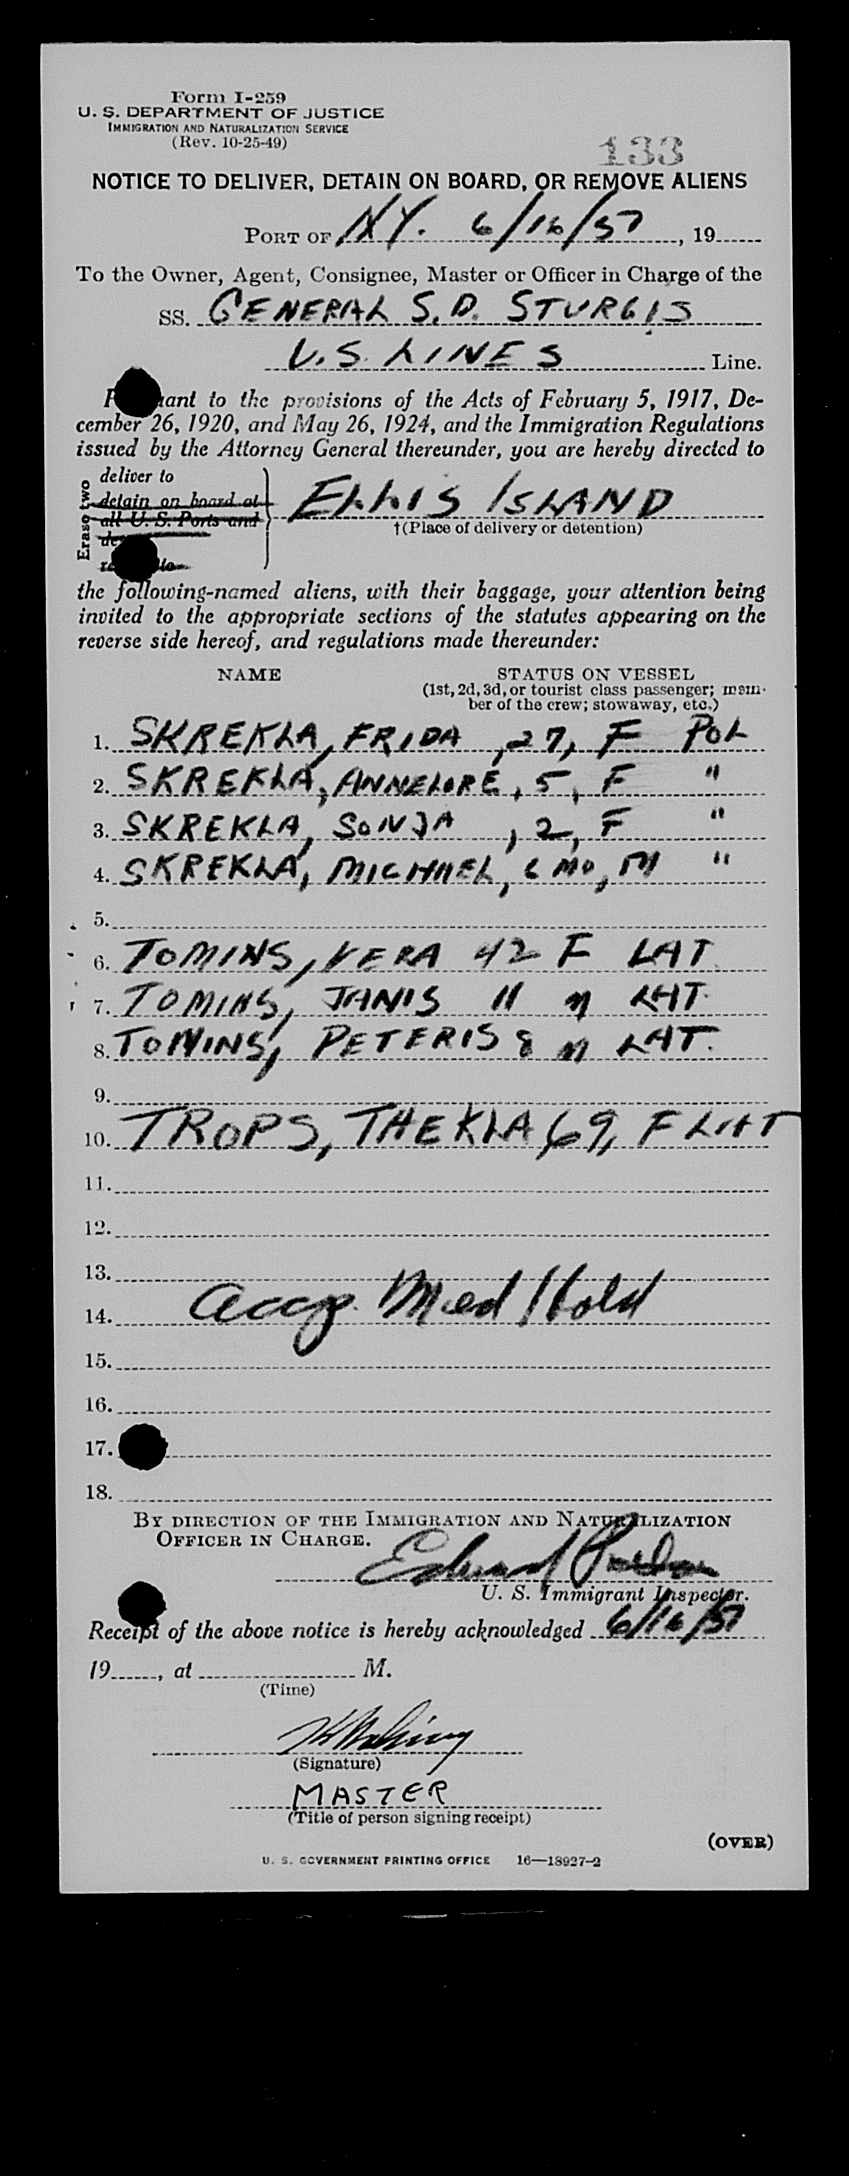 Form I-259
U. S. DEPARTMENT OF JUSTICE
IMMIGRATION AND NATURALIZATION SERVICE
(Rev. 10-25-49)
133
NOTICE TO DELIVER, DETAIN ON BOARD, OR REMOVE ALIENS
PORT OF N.Y. 6/16/51, 19
To the Owner, Agent, Consignee, Master or Officer in Charge of the
SS. GENERAL S. D. STURGIS
U.S. LINES Line.
to the provisions of the Acts of February 5, 1917, De-
cember 26, 1920, and May 26, 1924, and the Immigration Regulations
issued by the Attorney General thereunder, you are hereby directed to
Erase two
deliver to
detain on board at
all U. S. Ports and
ELLIS ISLAND
†(Place of delivery or detention)
the following-named aliens, with their baggage, your attention being
invited to the appropriate sections of the statutes appearing on the
reverse side hereof, and regulations made thereunder:
NAME STATUS ON VESSEL
(1st, 2d, 3d, or tourist class passenger; mem-
ber of the crew; stowaway, etc.)
1. SKREKLA, FRIDA, 27, F POL
2. SKREKLA, ANNELORE, 5, F "
3. SKREKLA, SONJA, 2, F "
4. SKREKLA, MICHAEL, 6 MO, M "
5.
6. TOMINS, VERA 42 F LAT
7. TOMINS, JANIS 11 M LAT.
8. TOMINS, PETERIS 8 M LAT.
9.
10. TROPS, THEKLA 69, F LAT
11.
12.
13.
14. accp. Med Hold
15.
16.
17.
18.
BY DIRECTION OF THE IMMIGRATION AND NATURALIZATION
OFFICER IN CHARGE.
Edward
U. S. Immigrant Inspector.
Receipt of the above notice is hereby acknowledged 6/16/51
19, at M.
(Time)
(Signature)
MASTER
(Title of person signing receipt)
(OVER)
U. S. GOVERNMENT PRINTING OFFICE 16—18927-2